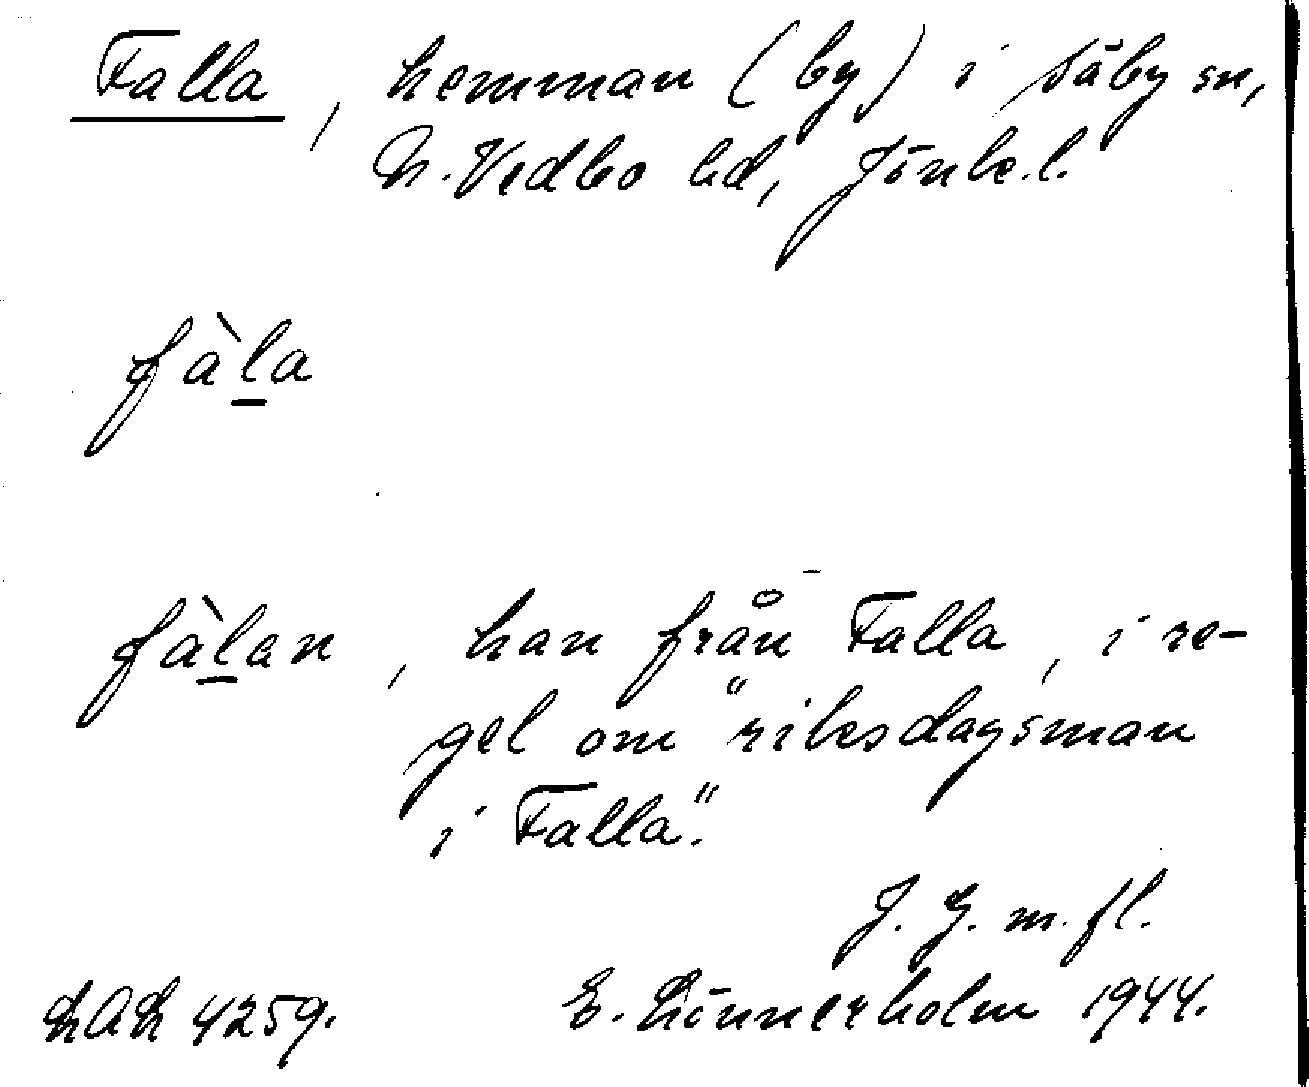 Falla, hemman (by) i Säby sn,
N. Vedbo hd, Jönk. l.
fàl̲a
fàl̲an, han från Falla, i re-
gel om "riksdagsman
i Falla".
J. G. m. fl.
LAL 4259. E. Linnerholm 1944.